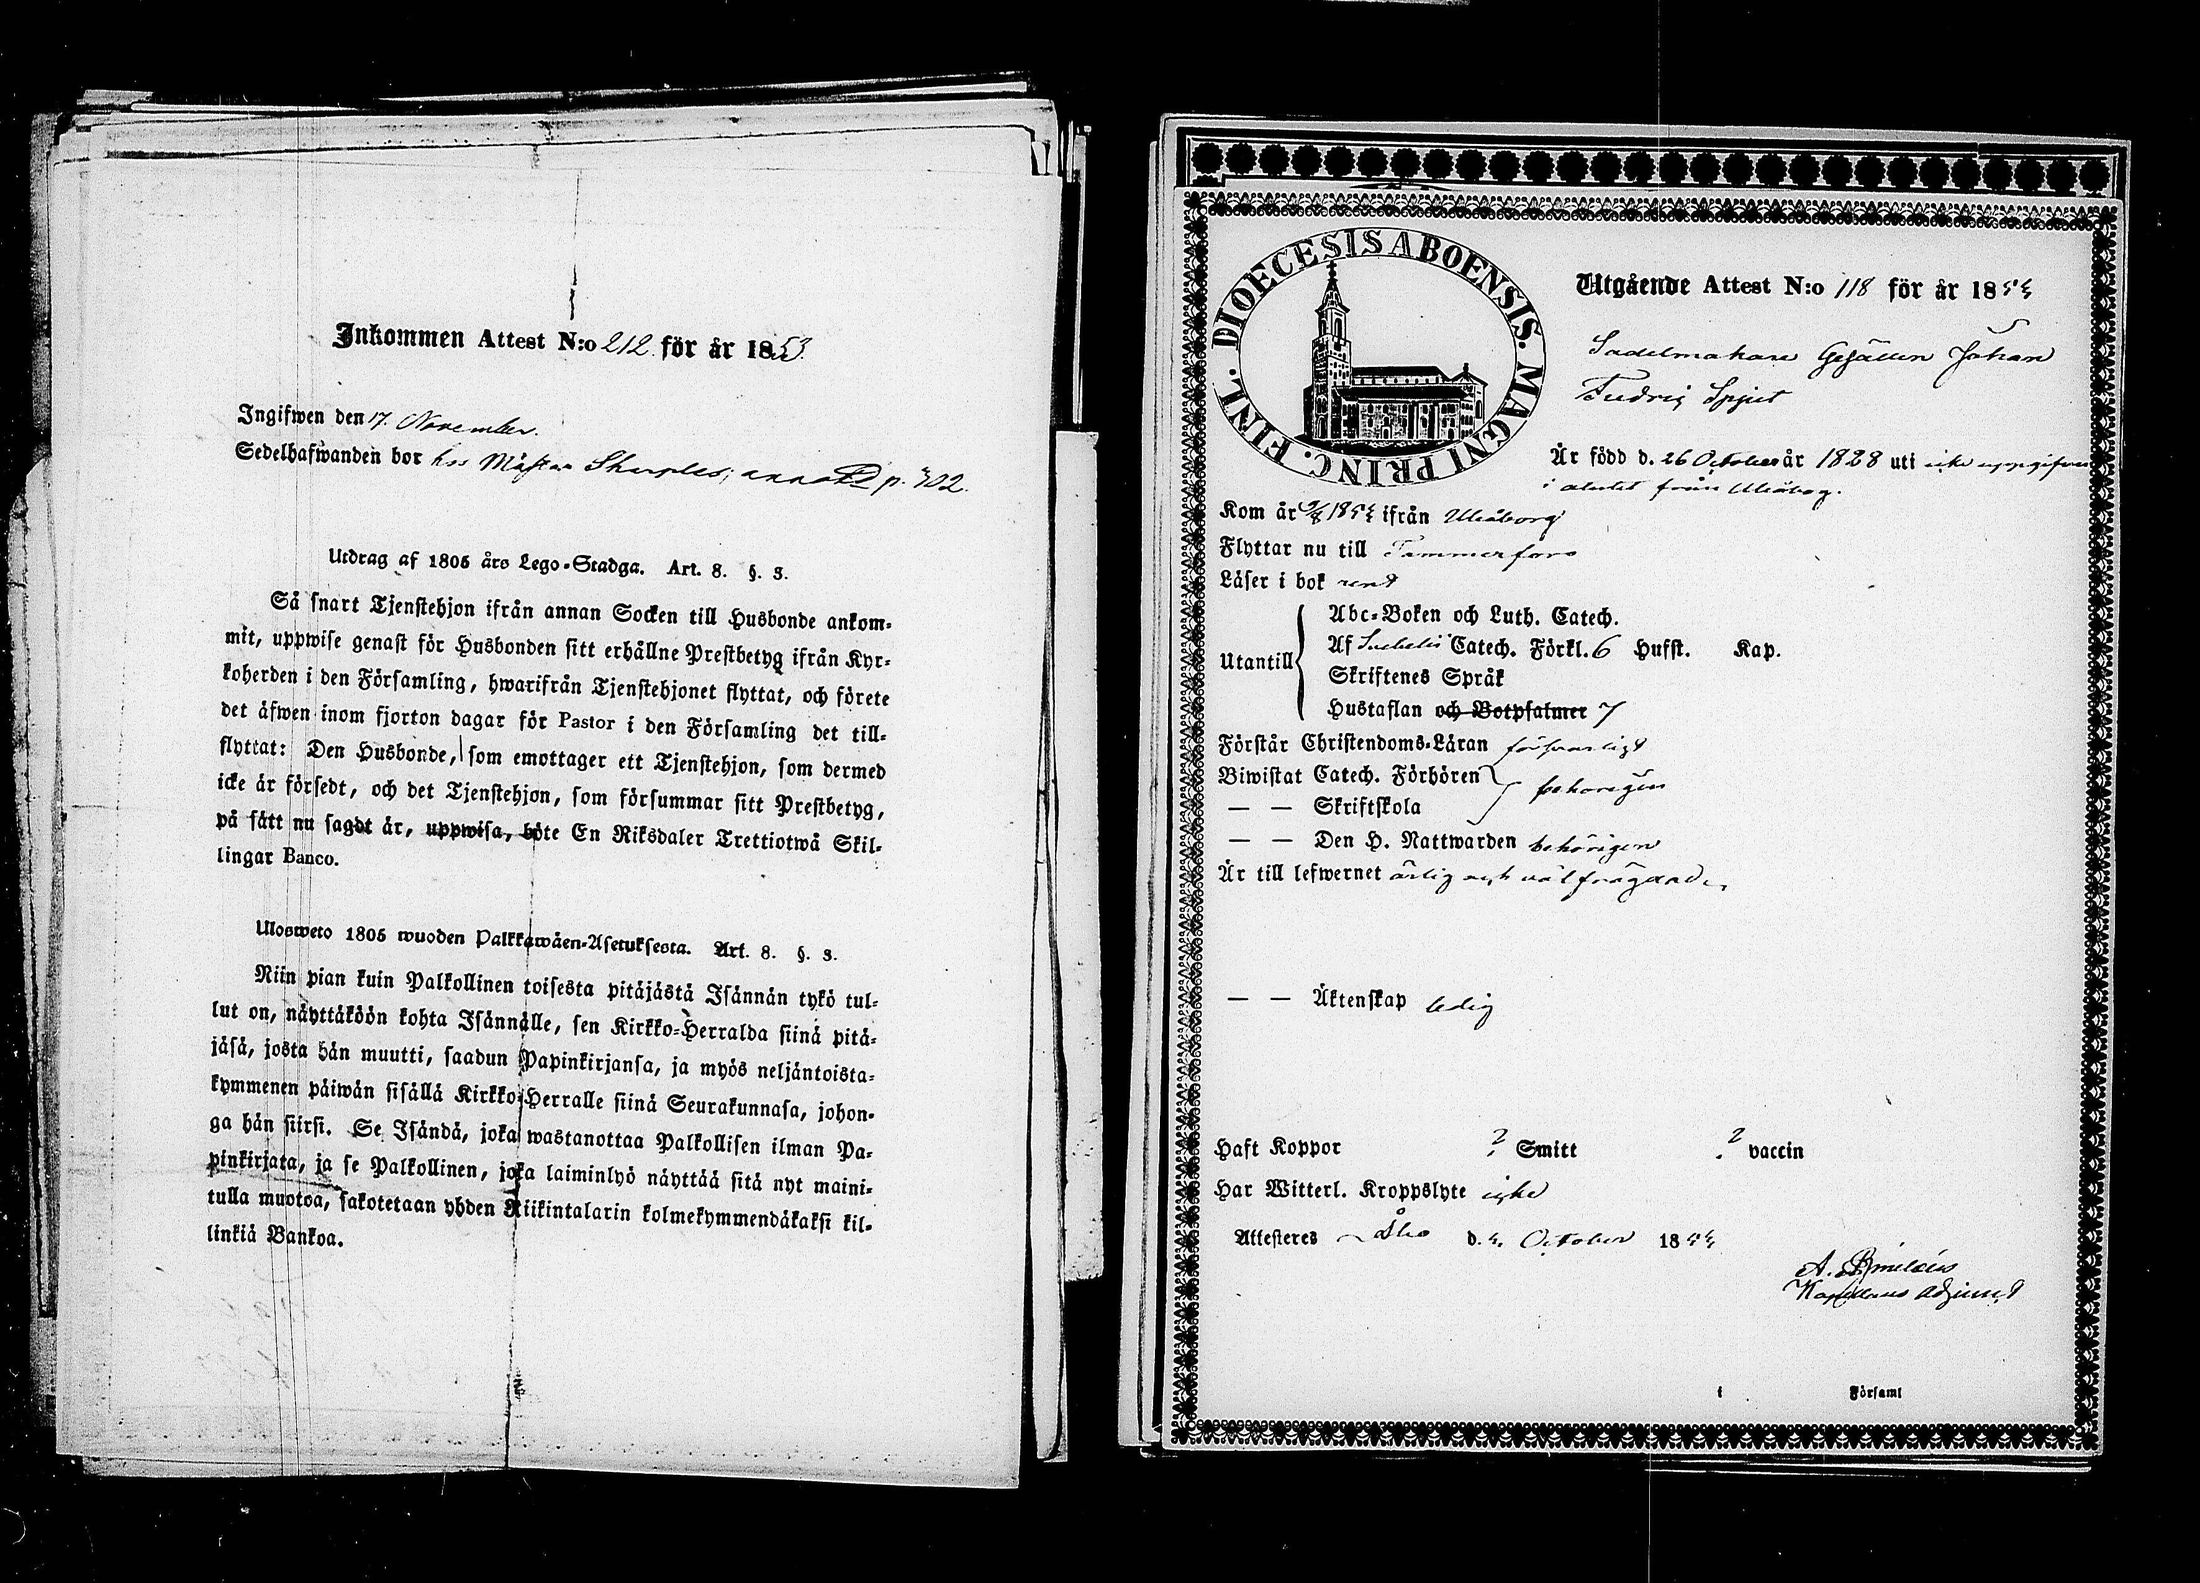 Inkommen Attest N:o 212 för år 1853
Ingifwen den 17. November.
Sedelhafwanden bor hos Mästar p. 702.
Utdrag af 1805 års Lego-Stadga. Art. 8. §. 3.
Så snart Tjenstehjon ifrån annan Socken till Husbonde ankom-
mit, uppwise genast för Husbonden sitt erhållne Prestbetyg ifrån Kyr-
koherden i den Församling, hwarifrån Tjenstehjonet flyttat, och förete
det äfwen inom fjorton dagar för Pastor i den Församling det till-
flyttat: Den Husbonde, som emottager ett Tjenstehjon, som dermed
icke är försedt, och det Tjenstehjon, som försummar sitt Prestbetyg,
på sätt nu sagdt är, uppwisa, böte En Riksdaler Trettiotwå Skil-
lingar Banco.
Ulosweto 1805 wuoden Palkkawäen-Asetuksesta. Art. 8. §. 3.
Niin pian kuin Palkollinen toisesta pitäjästä Isännän tykö tul-
lut on, näyttäköön kohta Isännälle, sen Kirkko-Herralda siinä pitä-
jäsä, josta hän muutti, saadun Papinkirjansa, ja myös neljäntoista-
kymmenen päiwän sisällä Kirkko-Herralle siinä Seurakunnasa, johon-
ga hän siirsi. Se Isändä, joka wastanottaa Palkollisen ilman Pa-
pinkirjata, ja se Palkollinen, joka laiminlyö näyttää sitä nyt maini-
tulla muotoa, sakotetaan yhden Riikintalarin kolmekymmendäkaksi kil-
linkiä Bankoa.
DIOECESIS ABOENSIS. MAGNI PRINC. FINL.
Utgående Attest N:o 118 för år 1854
Sadelmakare Gesällen Johan
Fredric Spjut
Är född d. 26 October år 1828 uti icke uppgifven
i attest från Uleåborg.
Kom år 1854 ifrån Uleåborg
Flyttar nu till Tammerfors
Läser i bok rent
Utantill
Abc-Boken och Luth. Catech.
Af Svebelii Catech. Förkl. 6 Hufst. Kap.
Skriftenes Språk
Hustaflan och Botpsalmer 7
Förstår Christendoms-Läran försvarligt
Biwistat Catech. Förhören behörigen
— — Skriftskola
— — Den H. Nattwarden behörigen
Är till lefwernet ärlig och välfrägdad
— — Äktenskap ledig
Haft Koppor ? Smitt ? vaccin
Har Witterl. Kroppslyte icke
Attesteres Åbo d. 4 October 1854
A.
Kapellans Adjunct
i Församl